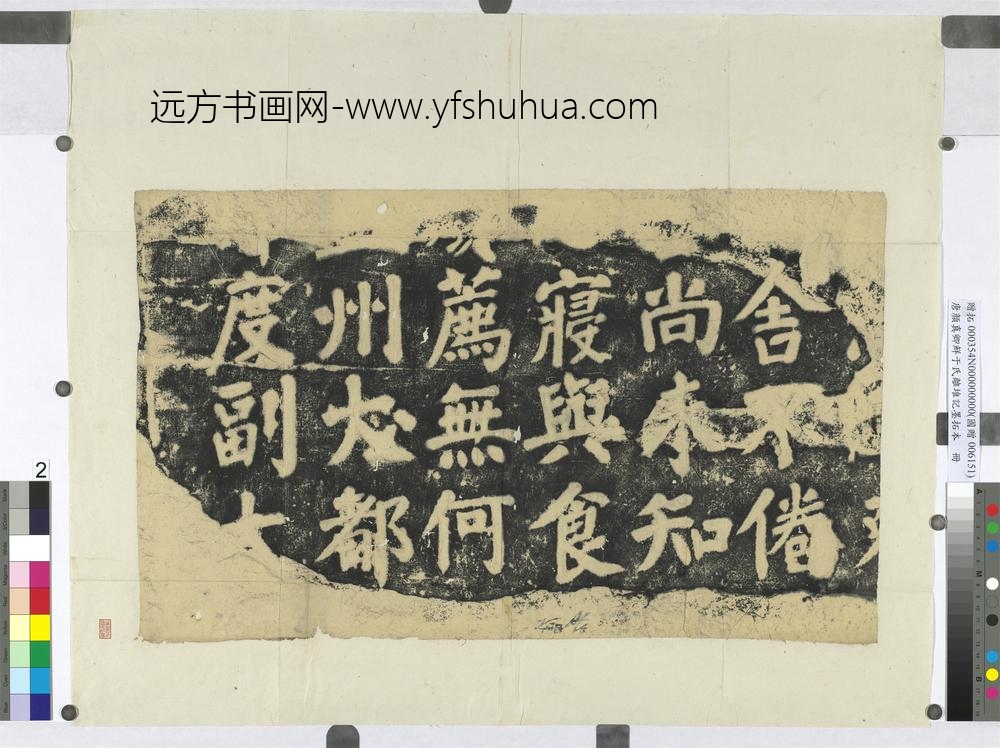 远方书画网-www.yfshuhua.com
舍不倦
尚未知
寢與食
薦無何
州大都
度副
贈拓 000354N000000000(國贈 006151)
唐顏真卿鮮于氏離堆記墨拓本 冊
2